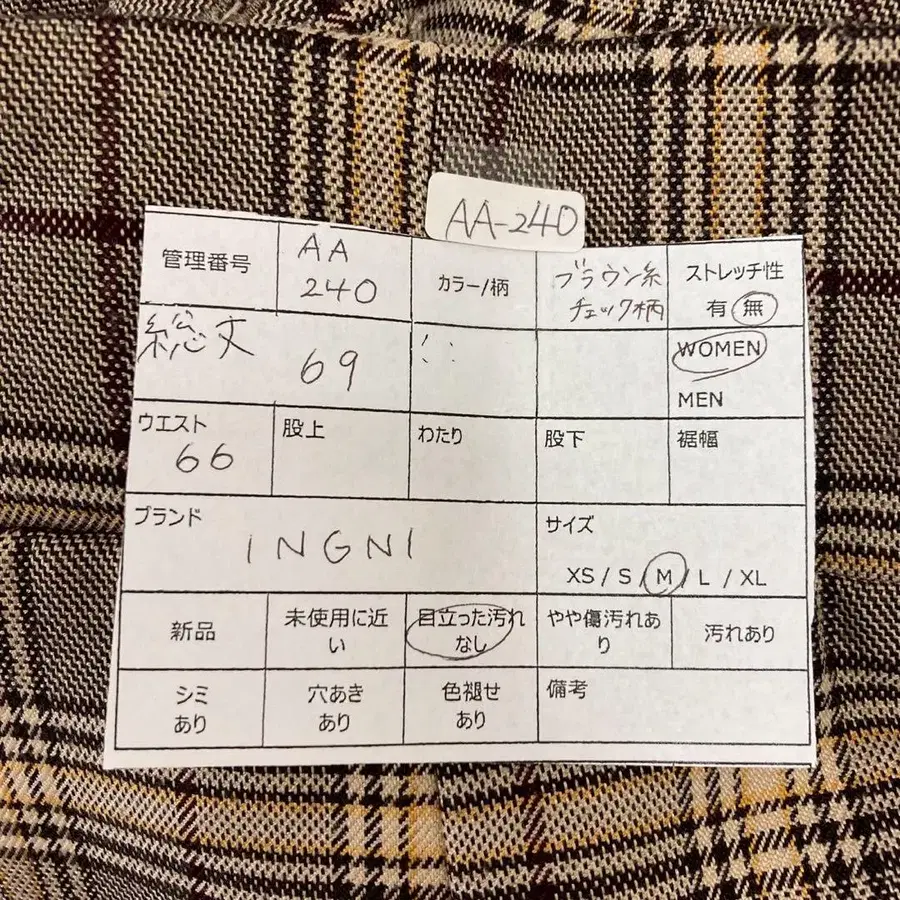 AA-240
管理番号
AA
240
カラー/柄
ブラウン系
チェック柄
ストレッチ性
有 無
総丈
69
WOMEN
MEN
ウエスト
66
股上
わたり
股下
裾幅
ブランド
INGNI
サイズ
XS / S / M / L / XL
新品
未使用に近
い
目立った汚れ
なし
やや傷汚れあ
り
汚れあり
シミ
あり
穴あき
あり
色褪せ
あり
備考